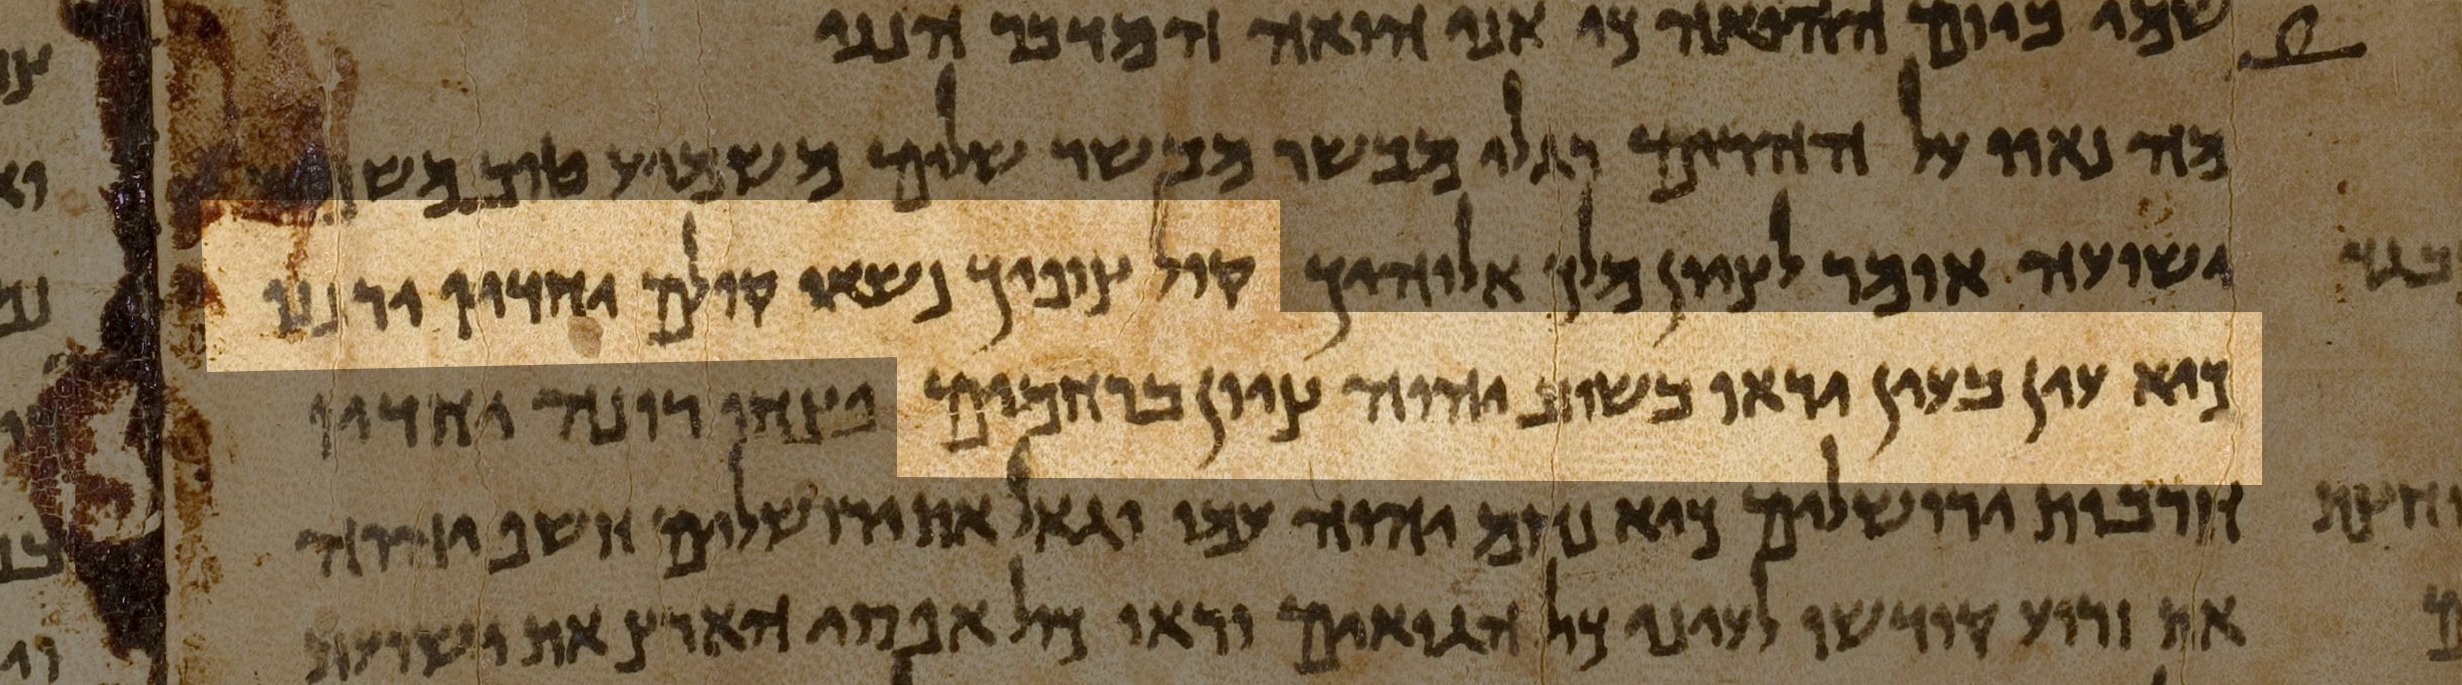 שמי ביום ההואה כי אני הואה המדבר הנני
מה נאוו על ההרים רגלי מבשר מבשר שלום משמיע טוב
ישועה אומר לציון מלך אלוהיך קול צופיך נשאו קולם יחדיו ירננו
כיא עין בעין יראו בשוב יהוה ציון ברחמים פצחו רונה יחדיו
חרבות ירושלים כיא נחם יהוה עמו וגאל את ירושלים חשף יהוה
את זרוע קודשו לעיני כול הגואים יראו כול אפסי הארץ את ישועת